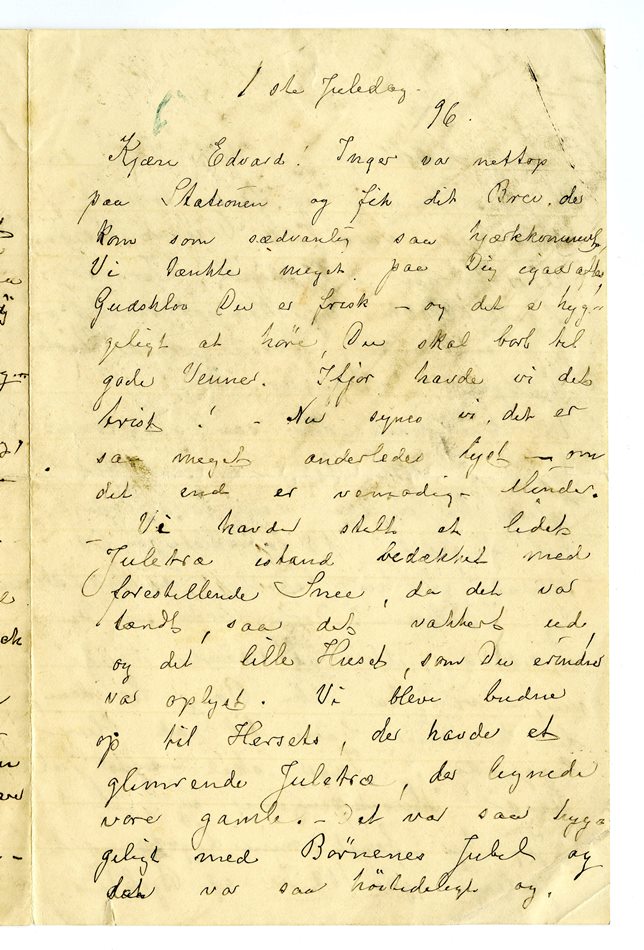 1ste Juledag
96.
Kjære Edvard! Inger var nettop
paa Stationen og fik dit Brev, der
kom som sædvanlig saa hjertkomment
Vi tænkte meget paa Dig igaar aftes
Gudskelov Du er frisk – og det er hyg-
geligt at höre, Du skal bort til
gode Venner. Ifjor havde vi det
trist! – Nu synes vi, det er
saa meget anderledes lyst – om
det end er vemodig- Minder.
Vi havde stelt et lidet
Juletræ istand bedækket med
forestillende Snee, da det var
tændt, saa det vakkert ud,
og det lille Huset, som Du erindrer
var oplyst. Vi bleve budne
op til Hersets, der havde et
glimrende Juletræ, der lignede
vore gamle. – Det var saa hyg-
geligt med Börnenes Jubel og
det var saa höitideligt og,